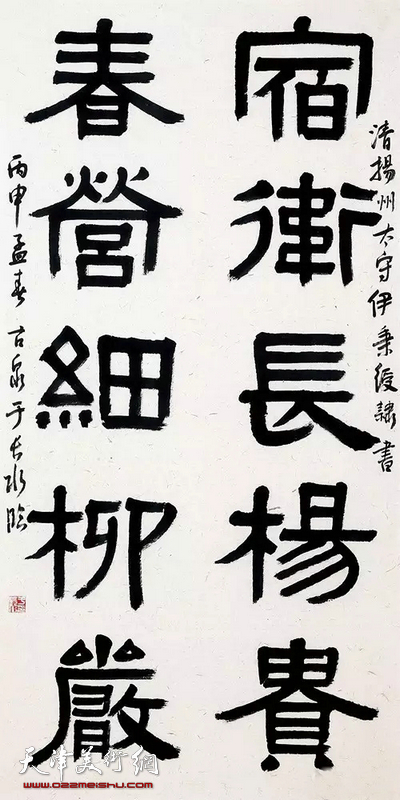 清揚州太守伊秉綬隸書
宿衛長楊貴
春營細柳嚴
丙申孟春古泉于長水臨
天津美術網
www.022meishu.com